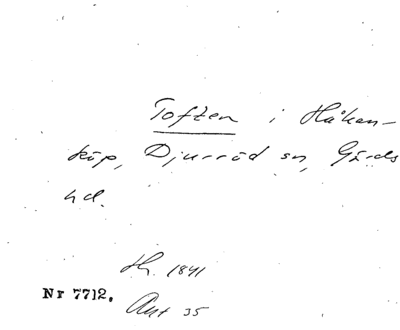 Toften i Håkan-
köp, Djurröd sn, Gärds
hd.
Hr. 1841
Nr 7712.
Ant 35